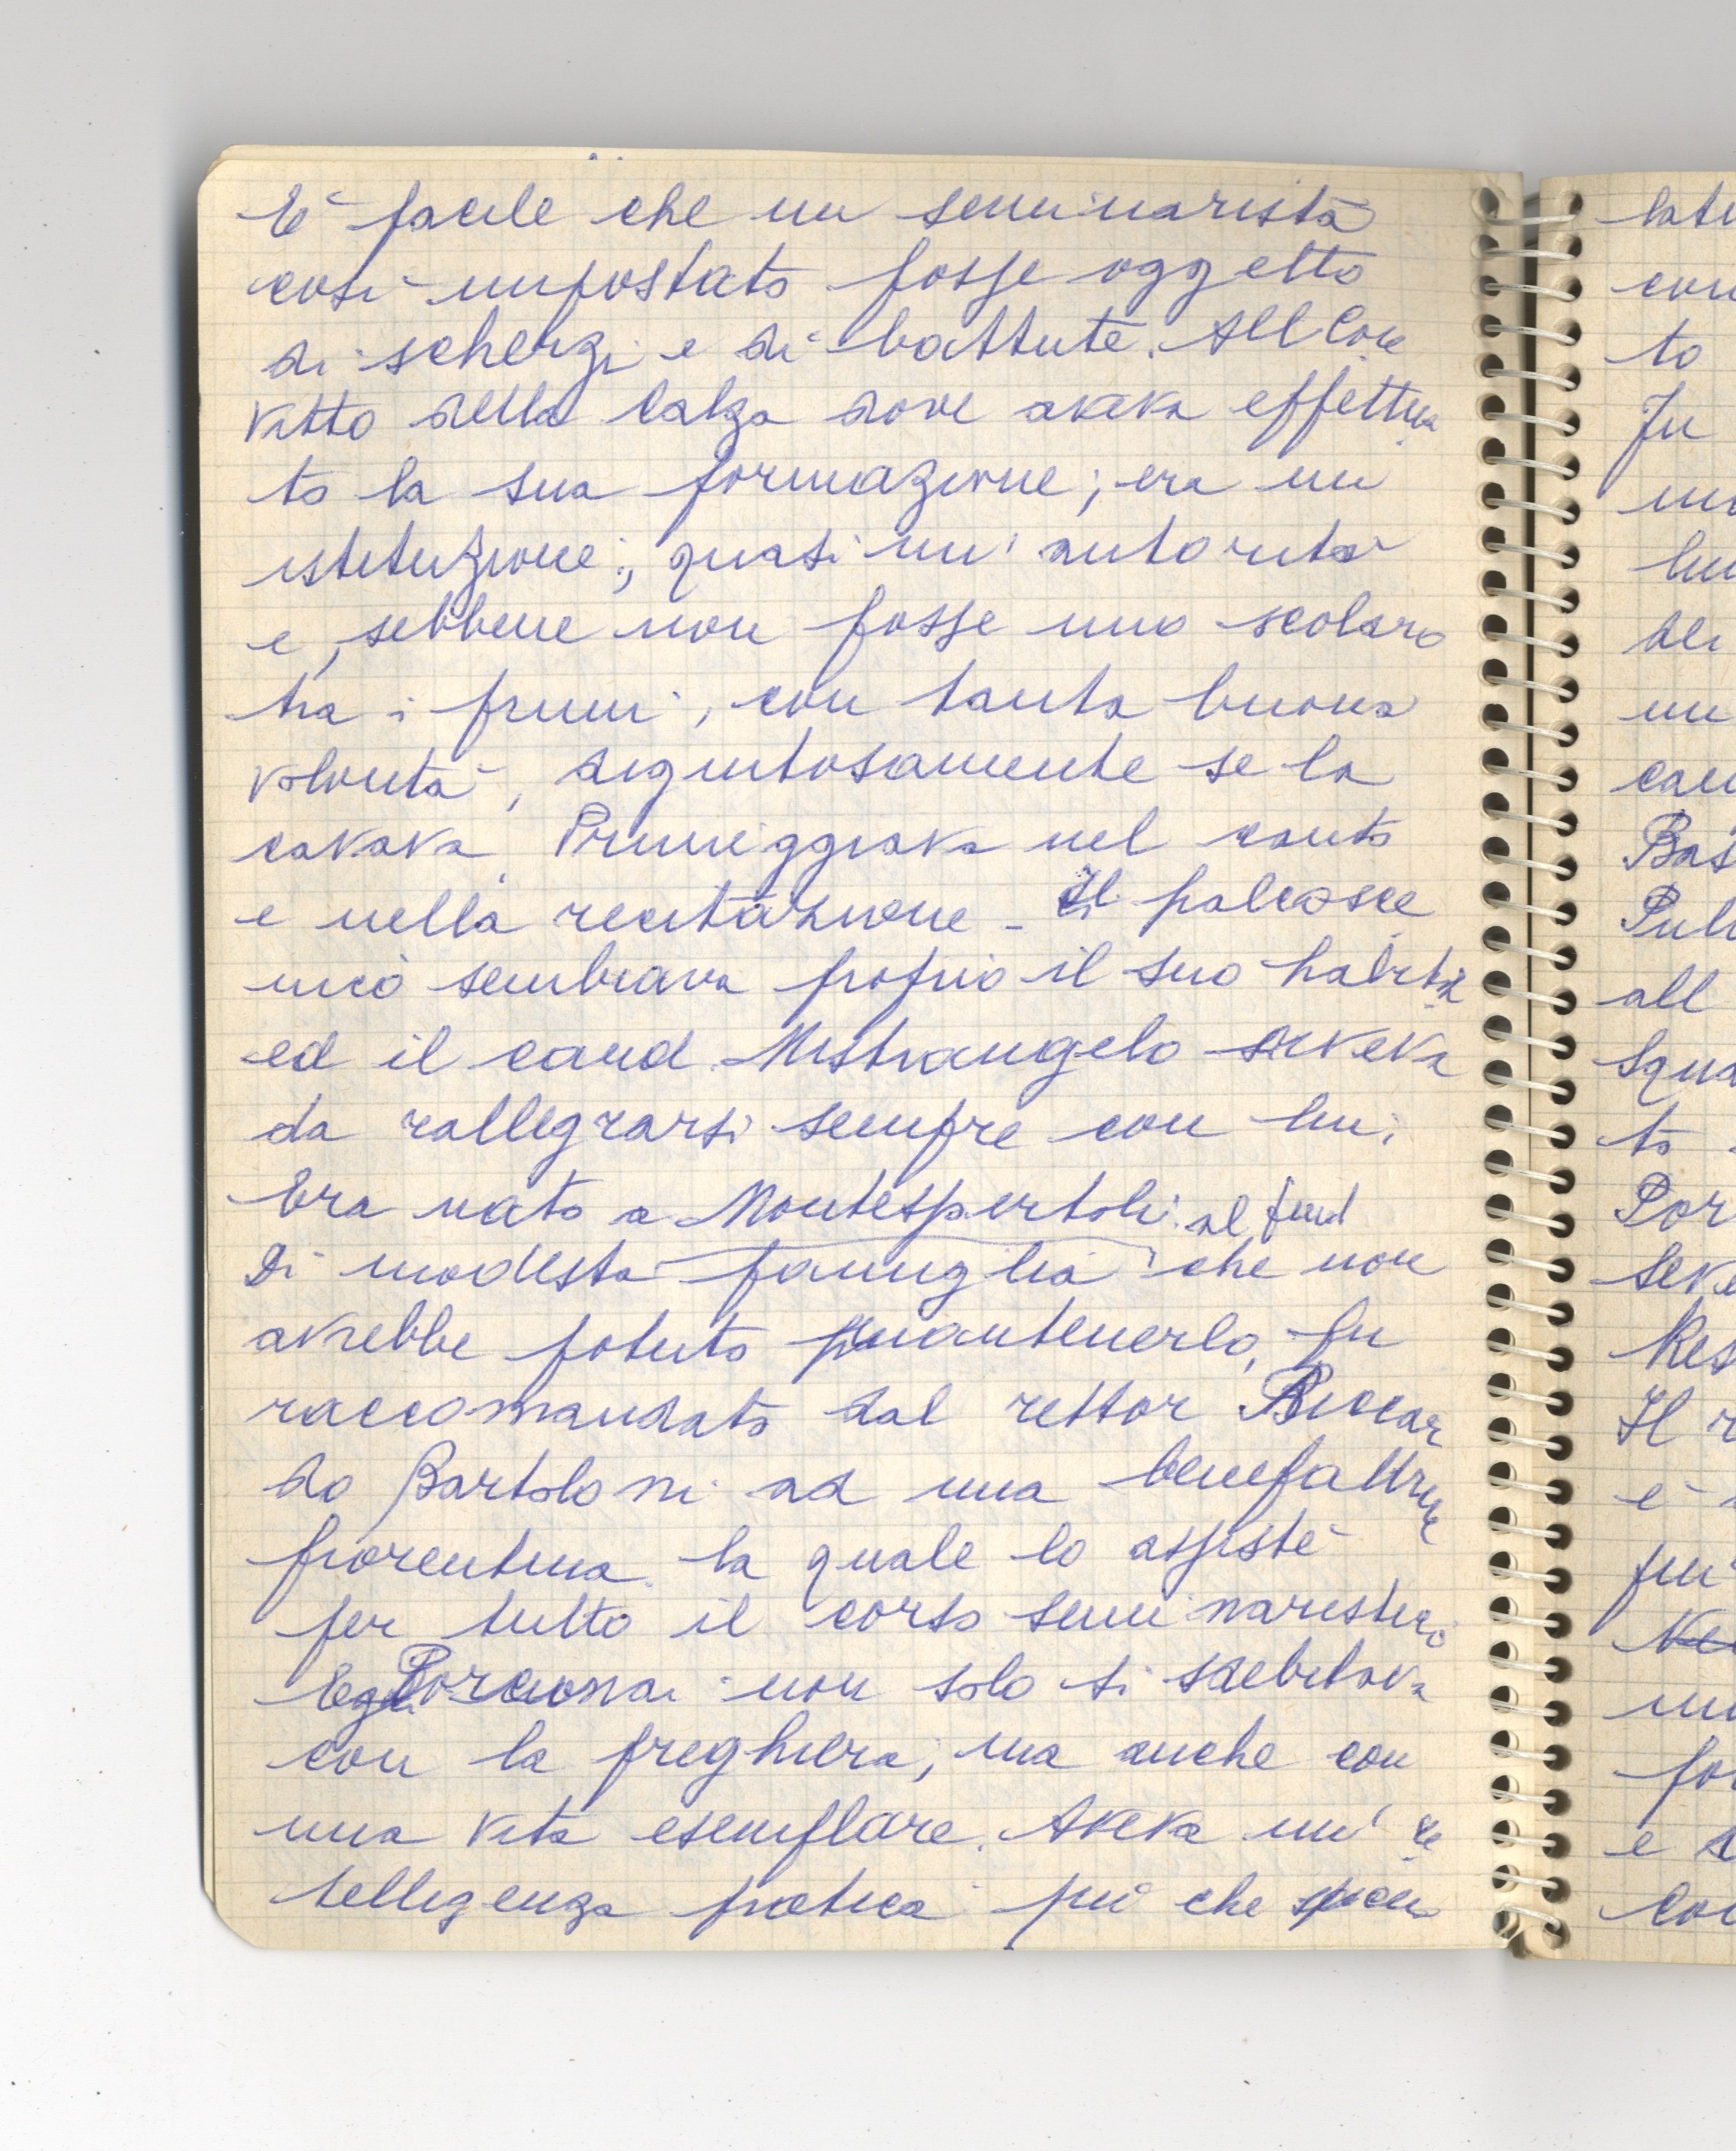 E' facile che un seminarista
così impostato fosse oggetto
di scherzi e di battute. All Con
vitto della Calza dove aveva effettua
to la sua formazione; era un
istituzione; quasi un' autorità
e, sebbene non fosse uno scolaro
tra i primi, con tanta buona
volontà, dignitosamente se la
cavava. Primeggiava nel canto
e nella recitazione - Il palcosce
nico sembrava proprio il suo habitat
ed il card. Mistrangelo aveva
da rallegrarsi sempre con lui.
Era nato a Montespertoli. al
Di modesta famiglia che non
avrebbe potuto mantenerlo, fu
raccomandato dal rettor Riccar
do Bartoloni ad una benefattrice
fiorentina la quale lo assistè
per tutto il corso seminaristico
Porcionai non solo si sdebitava
con la preghiera, ma anche con
una vita esemplare. Aveva un'
telligenza pratica più che
lati
con
to
In
un
Bas
Pul
all
squa
to
Por
Seve
Res
Il r
è
e